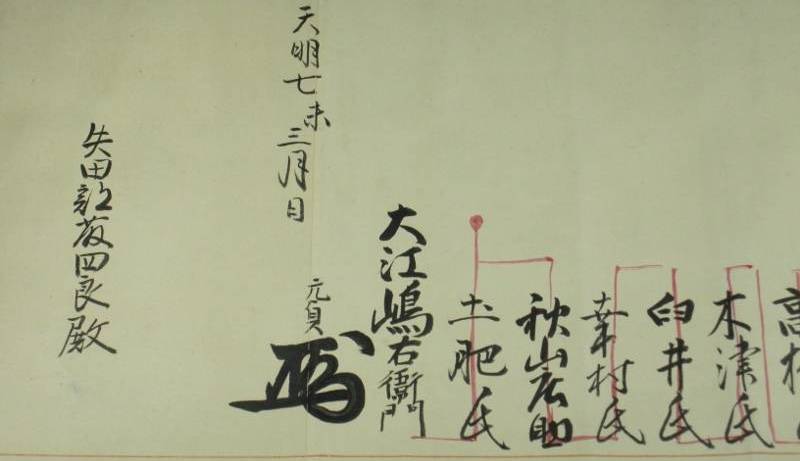 高
木津氏
臼井氏
幸村氏
秋山広助
土肥氏
大江嶋右衛門
元貞
天明七未
三月日
矢田 四良殿